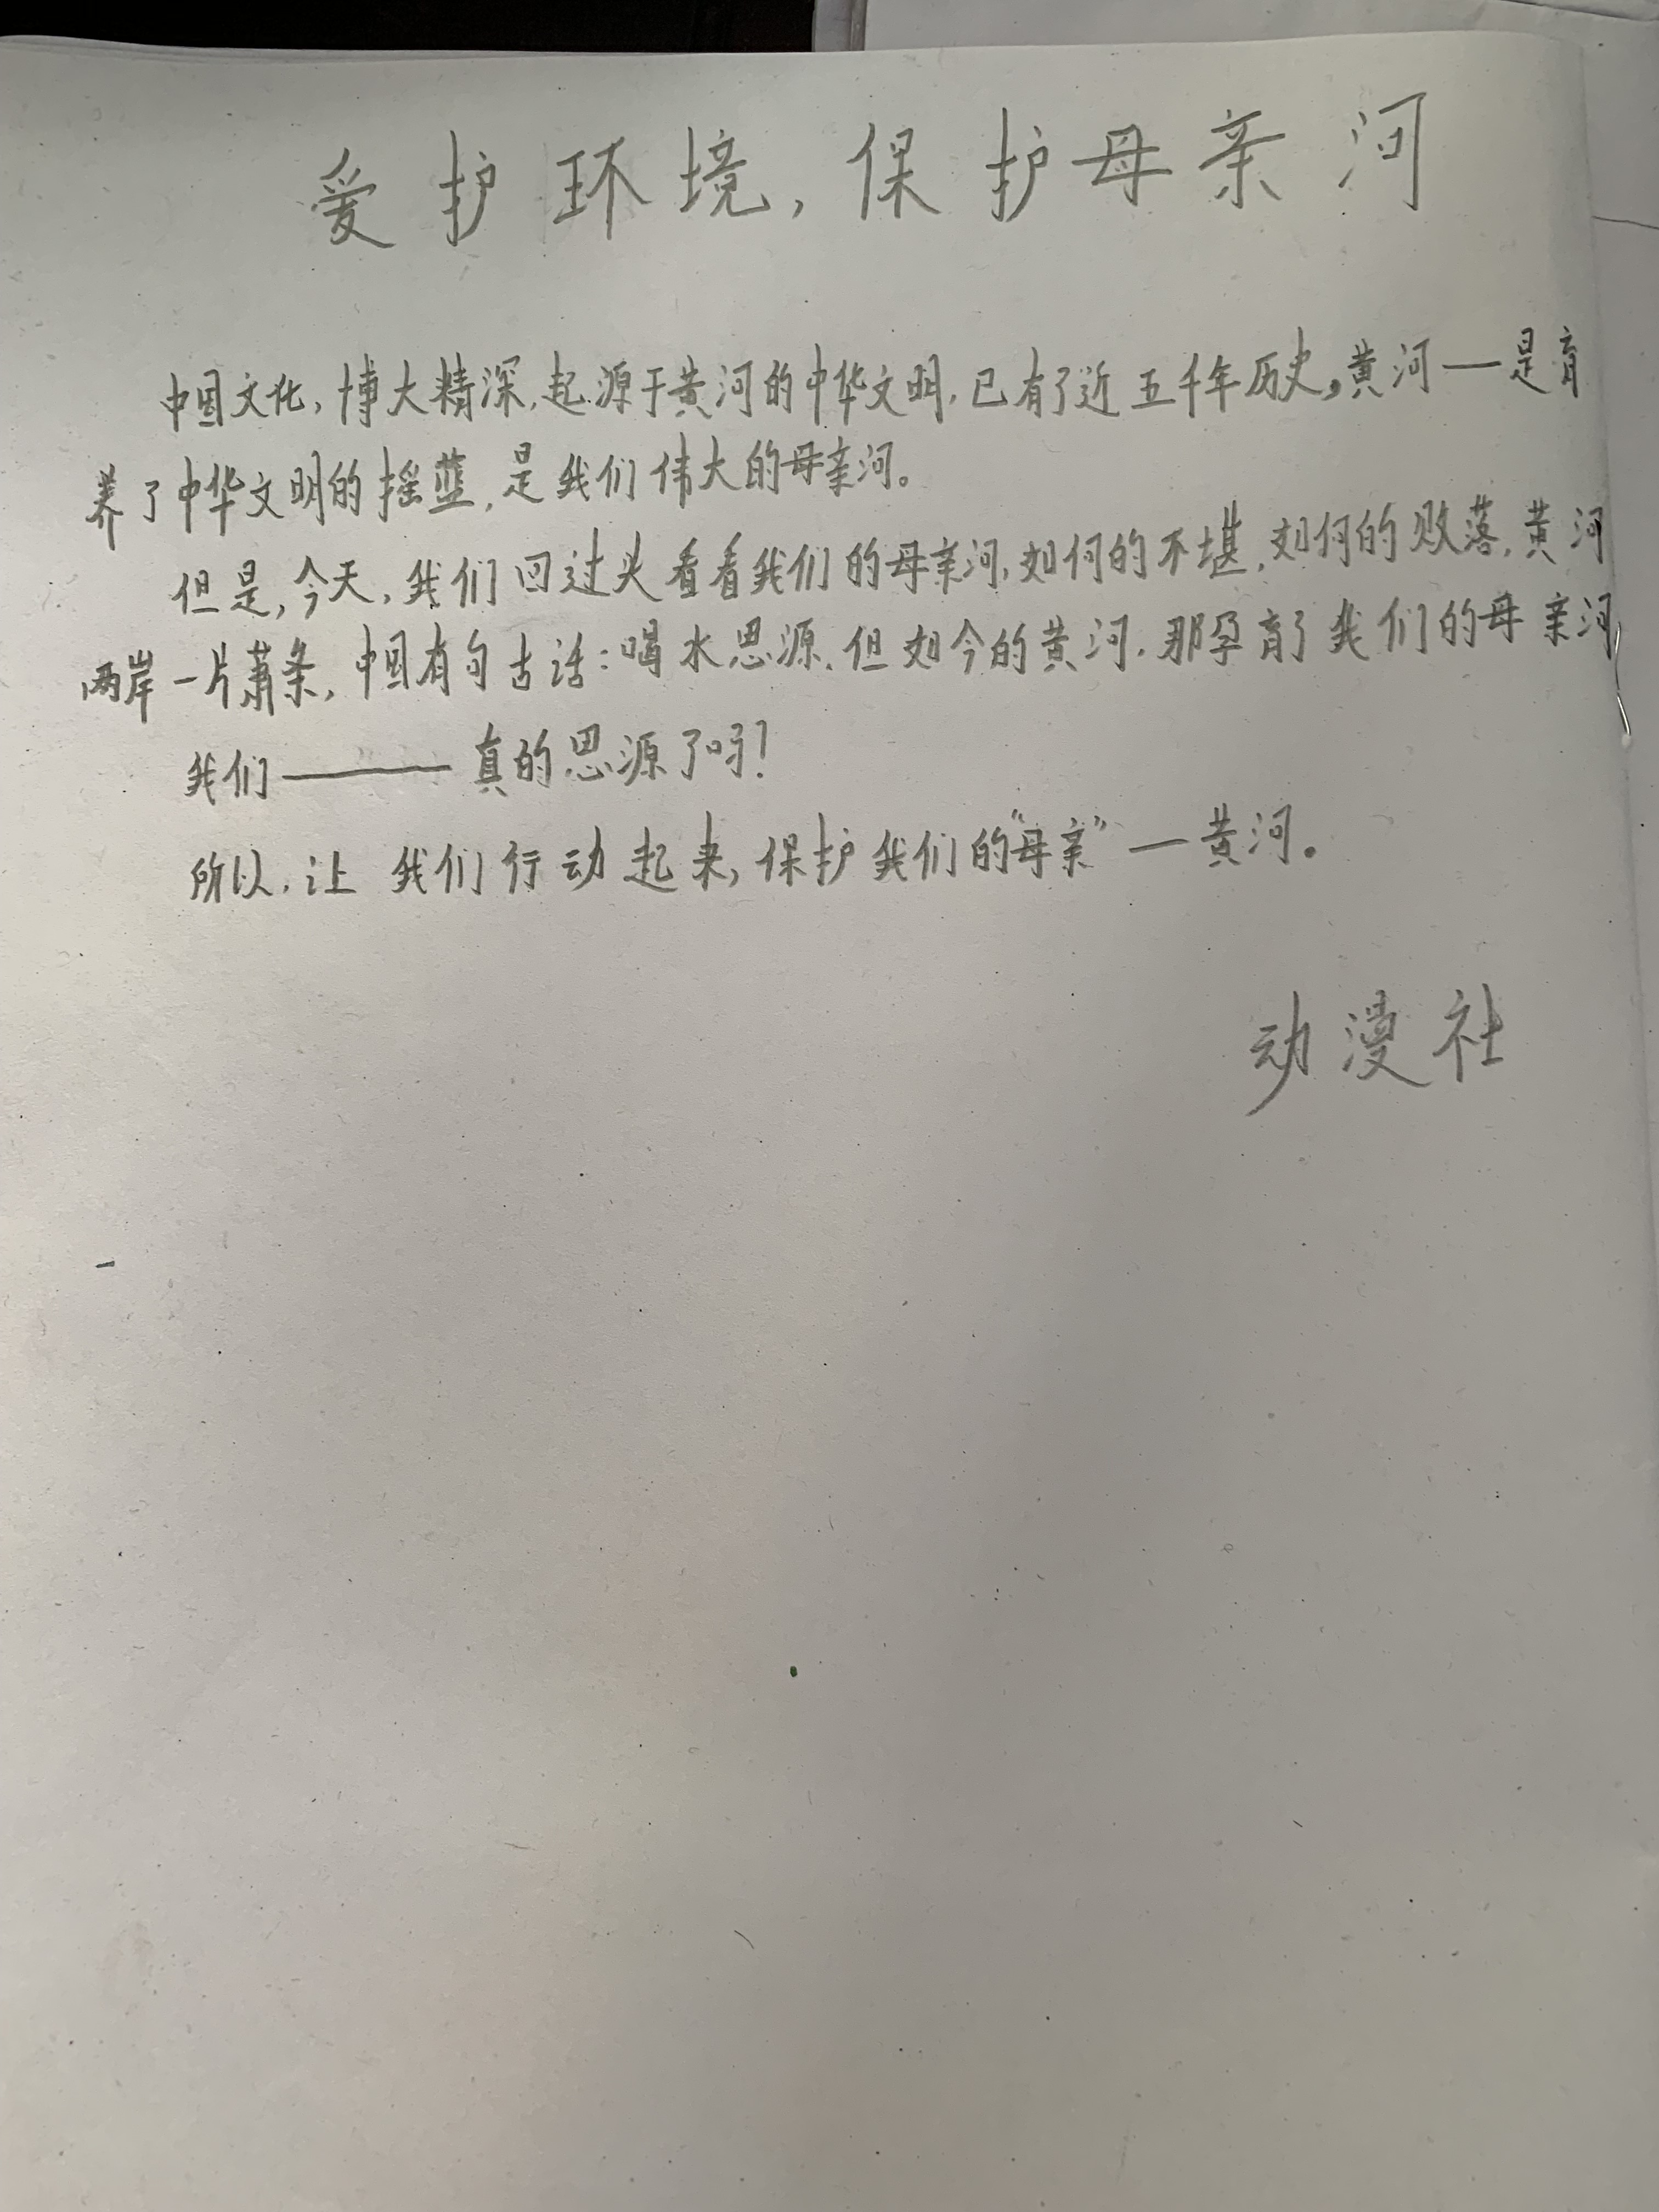 爱护环境,保护母亲河
中国文化,博大精深,起源于黄河的中华文明,已有了近五千年历史,黄河一是育
养了中华文明的摇蓝,是我们伟大的母亲河。
但是,今天,我们回过头看看我们的母亲河,如何的不堪,如何的败落,黄河
两岸一片萧条,中国有句古话:喝水思源,但如今的黄河,那孕育了我们的母亲河,
我们——真的思源了吗?
所以,让我们行动起来,保护我们的“母亲”—黄河。
动漫社